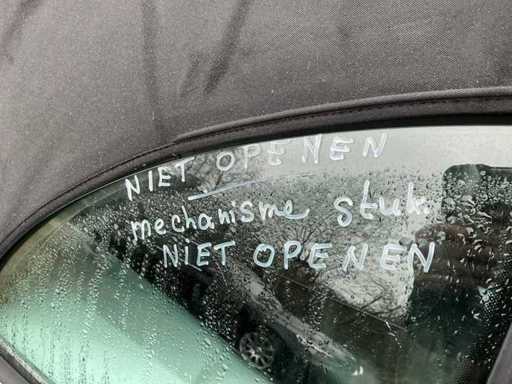 NIET OPENEN
mechanisme stuk
NIET OPENEN